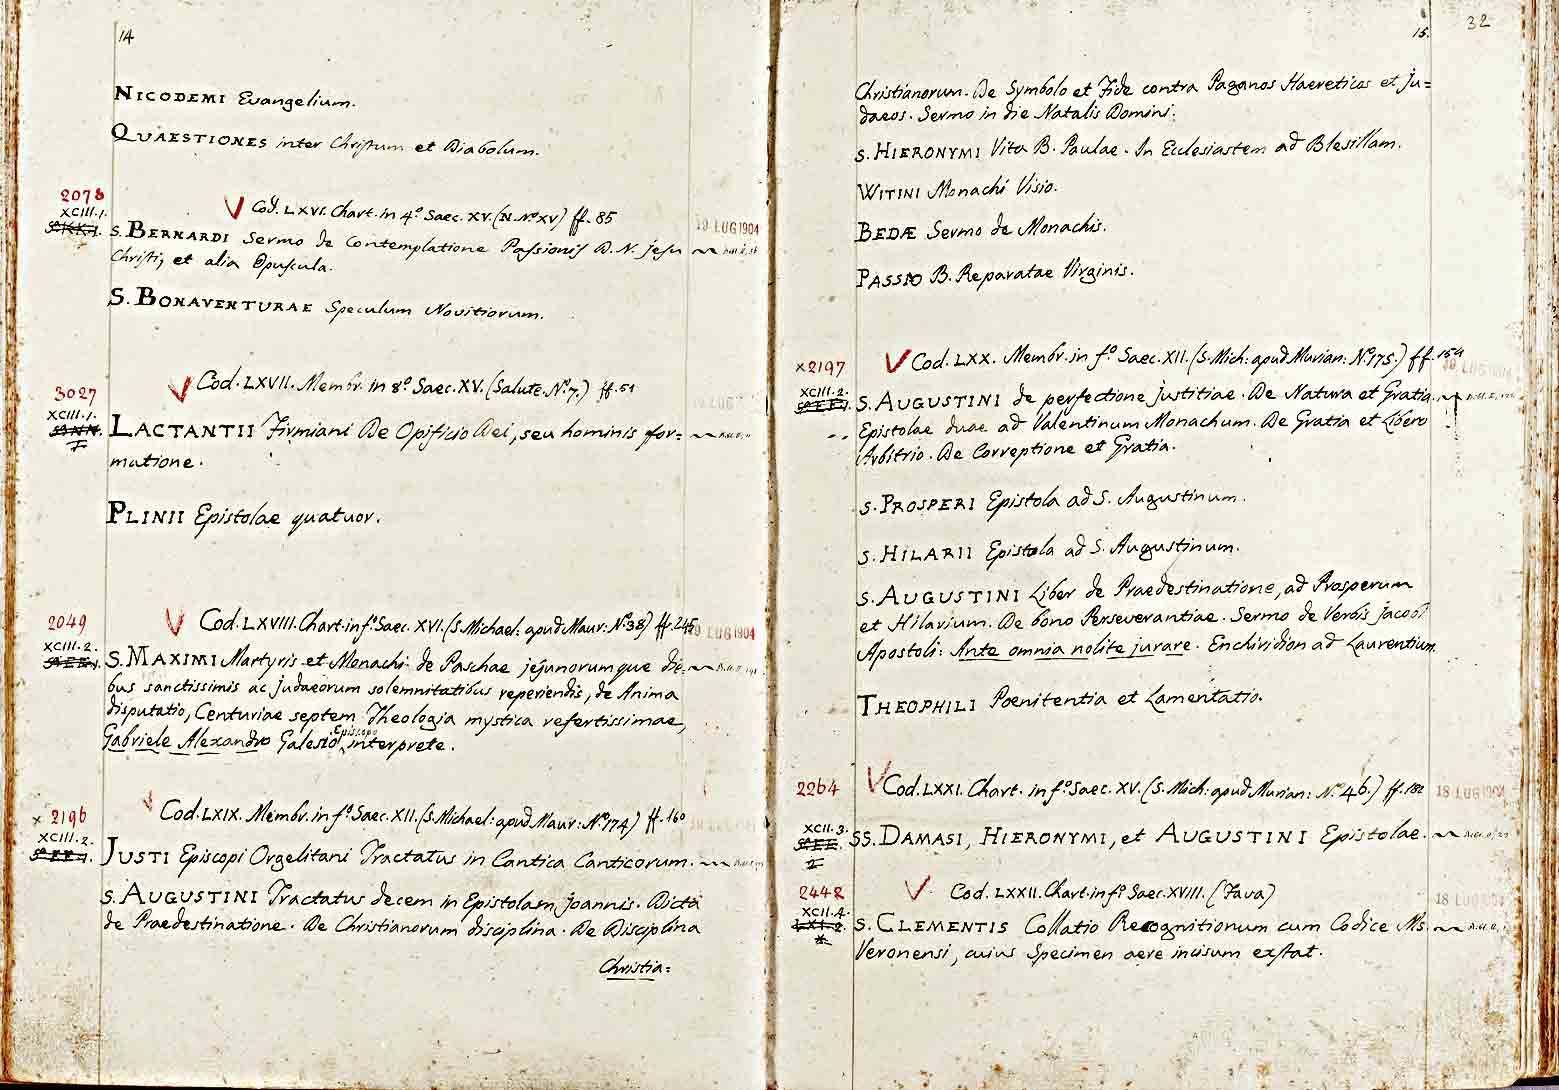 14
NICODEMI Evangelium.
QUAESTIONES inter Christum et Diabolum.
2078
XCIII.1.
V Cod. LXVI. Chart. in 4.º Saec. XV. (N. Nº XV) ff. 85
19 LUG 1904
S. BERNARDI Sermo de Contemplatione Passionis D. N. Jesu
Christi, et alia Opuscula.
S. BONAVENTURAE Speculum Novitiorum.
3027
XCIII.1.
V Cod. LXVII. Membr. in 8º Saec. XV. (Salute. Nº 7.) ff. 51
LACTANTII Firmiani De Opificio Dei, seu hominis for=
matione.
PLINII Epistolae quatuor.
2049
XCIII.2.
V Cod. LXVIII. Chart. in fº Saec. XVI. (S. Michael: apud Maur: Nº 38) ff. 245
LUG 1904
S. MAXIMI Martyris et Monachi de Paschae jejunorumque die=
bus sanctissimis ac Judaeorum solemnitatibus reperiendis, de Anima
disputatio, Centuriae septem Theologia mystica refertissimae,
Gabriele Alexandro Galesio Episcopo interprete.
x 2196
XCIII.2.
V Cod. LXIX. Membr. in fº Saec. XII. (S. Michael: apud Maur: Nº 174) ff. 160
JUSTI Episcopi Orgelitani Tractatus in Cantica Canticorum.
S. AUGUSTINI Tractatus decem in Epistolam Joannis. Dicta
de Praedestinatione. De Christianorum disciplina. De Disciplina
Christia=
15.
32
Christianorum. De Symbolo et Fide contra Paganos Haereticos et Ju=
daeos. Sermo in die Natalis Domini.
S. HIERONYMI Vita B. Paulae. In Ecclesiastem ad Blesillam.
WITINI Monachi Visio.
BEDÆ Sermo de Monachis.
PASSIO B. Reparatae Virginis.
x 2197
XCIII.2.
V Cod. LXX. Membr. in fº Saec. XII. (S. Mich: apud Murian: Nº 175.) ff. 154
S. AUGUSTINI de perfectione justitiae. De Natura et Gratia.
Epistolae duae ad Valentinum Monachum. De Gratia et Libero
Arbitrio. De Correptione et Gratia.
S. PROSPERI Epistola ad S. Augustinum.
S. HILARII Epistola ad S. Augustinum.
S. AUGUSTINI Liber de Praedestinatione, ad Prosperum
et Hilarium. De bono Perseverantiae. Sermo de Verbis Jacobi
Apostoli: Ante omnia nolite jurare. Enchiridion ad Laurentium.
THEOPHILI Poenitentia et Lamentatio.
2264
XCII.3.
V Cod. LXXI. Chart. in fº Saec. XV. (S. Mich: apud Murian: Nº 46.) ff. 182
18 LUG 1904
SS. DAMASI, HIERONYMI, et AUGUSTINI Epistolae.
2442
XCII.4.
V Cod. LXXII. Chart. in fº Saec. XVIII. (Fava)
18 LUG 1904
S. CLEMENTIS Collatio Recognitionum cum Codice Ms.
Veronensi, cuius Specimen aere incisum exstat.